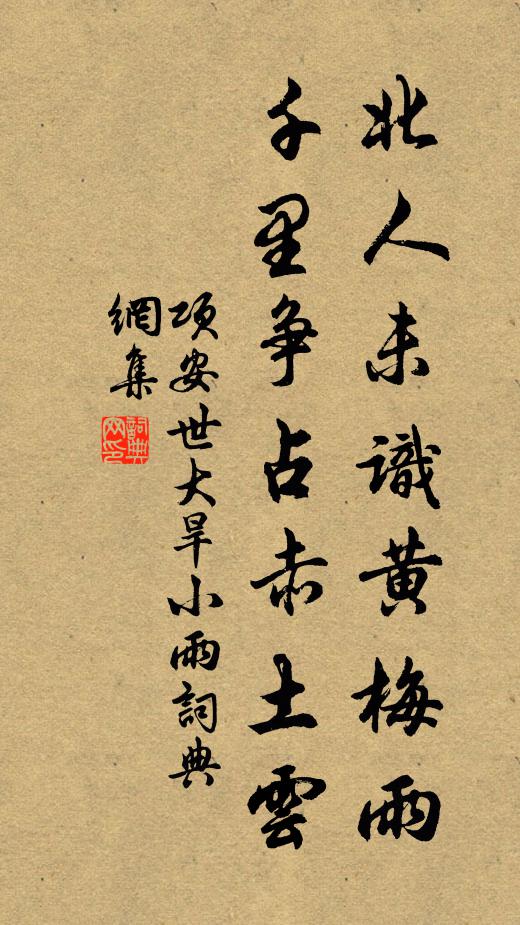 北人未識黄梅雨
千里争占赤土雲
項安世大旱小雨詞典
網集
詞典
网印